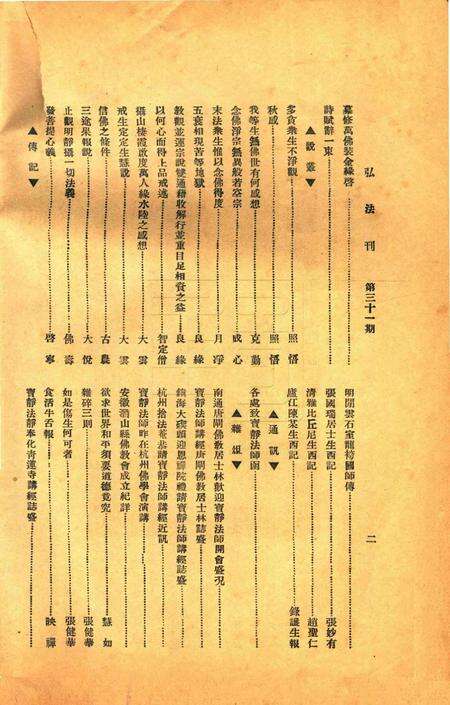 弘法刊 第三十一期 二
募修萬佛裝金緣啓
詩賦辭一束
▲說叢▼
多貪衆生不淨觀 照悟
秋感 照悟
我等生無佛世有何感想 克勤
念佛淨宗無異般若空宗 成心
末法衆生惟以念佛得度 月淨
五衰相現苦等地獄 良緣
教觀並運宗說雙通藉收解行並重目足相資之益 良緣
以何心而得上品戒述 智定僧
棲霞啟度萬人緣水陸之感想 大雲
戒生定定生慧說 大雲
信佛之條件 古農
三途果報說 大悅
止觀明靜攝一切法義 佛壽
發菩提心義 啓寧
▲傳記▼
明閉雲石室龍裕國師傳
張國瑞居士生西記 張妙有
清雅比丘尼生西記 趙聖仁
廬江陳某生西記 錄護生報
▲通訊▼
各處致寶靜法師函
▲雜俎▼
南通唐閘佛教居士林歡迎寶靜法師開會盛況
寶靜法師講經唐閘佛教居士林誌盛
鎮海大碶頭迎恩禪院禮請寶靜法師講經誌盛
杭州拾法菴恭請寶靜法師講經近訊
寶靜法師昨在杭州佛學會演講
安徽潛山縣佛教會成立紀詳
欲求世界和平須要道德竟究 慧如
雜碎三則 張健華
如是傷生何可者 張健華
食活牛舌報 映禪
寶靜法師奉化青蓮寺講經誌盛